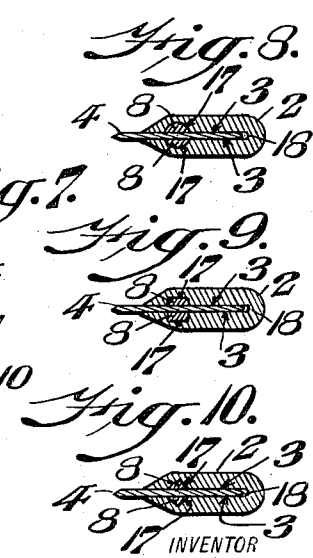 Fig. 8.
8 17 3 2
4 18
8 17 3
g. 7.
Fig. 9.
8 17 3 2
4 18
8 17 3
10
Fig. 10.
8 17 2 3
4 18
8 17 3
INVENTOR